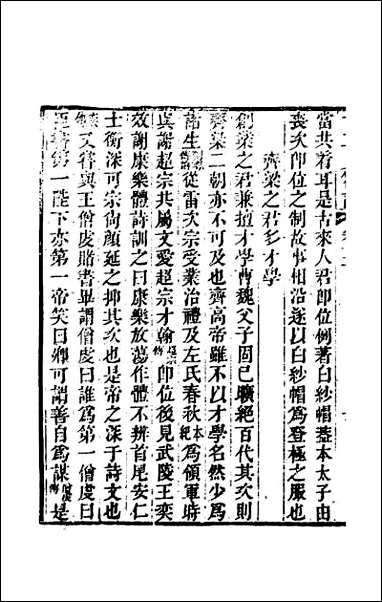 當共着耳是古來人君卽位例著白紗帽蓋本太子由
喪次卽位之制故事相沿遂以白紗帽爲登極之服也
齊梁之君多才學
創業之君兼擅才學曹魏父子固已曠絕百代其次則
齊梁二朝亦不可及也齊高帝雖不以才學名然少爲
諸生從雷次宗受業治禮及左氏春秋本紀爲領軍時
與謝超宗共屬文愛超宗才翰卽位後見武陵王奕
效謝康樂體詩訓之曰康樂放蕩作體不辨首尾安仁
士衡深可宗尚顏延之抑其次也是帝之深于詩文也
又嘗與王僧虔賭書畢謂僧虔曰誰爲第一僧虔曰
臣書第一陛下亦第一帝笑曰卿可謂善自爲謀是